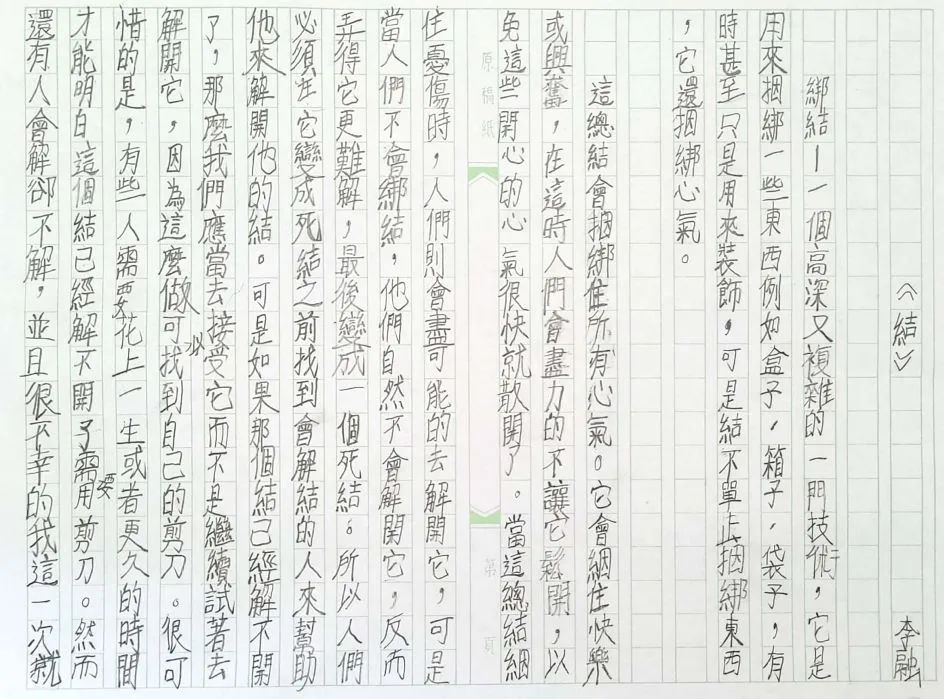 ︿結﹀ 李融
綁結——個高深又複雜的一門技術，它是
用來捆綁一些東西例如盒子，箱子，袋子，有
時甚至只是用來裝飾，可是結不單止捆綁東西
，它還捆綁心氣。
這總結會捆綁住所有心氣。它會綑住快樂
或興奮，在這時人們會盡力的不讓它鬆開，以
免這些開心的心氣很快就散開了。當這總結綑
原稿紙 第 頁
住憂傷時，人們則會盡可能的去解開它，可是
當人們不會綁結，他們自然不會解開它，反而
弄得它更難解，最後變成一個死結。所以人們
必須在它變成死結之前找到會解結的人來幫助
他來解開他的結。可是如果那個結已經解不開
了，那麼我們應當去接受它而不是繼續試著去
解開它，因為這麼做可以找到自己的剪刀。很可
惜的是，有些人需要花上一生或者更久的時間
才能明白這個結已經解不開了需要用剪刀。然而
還有人會解卻不解，並且很不幸的我這一次就